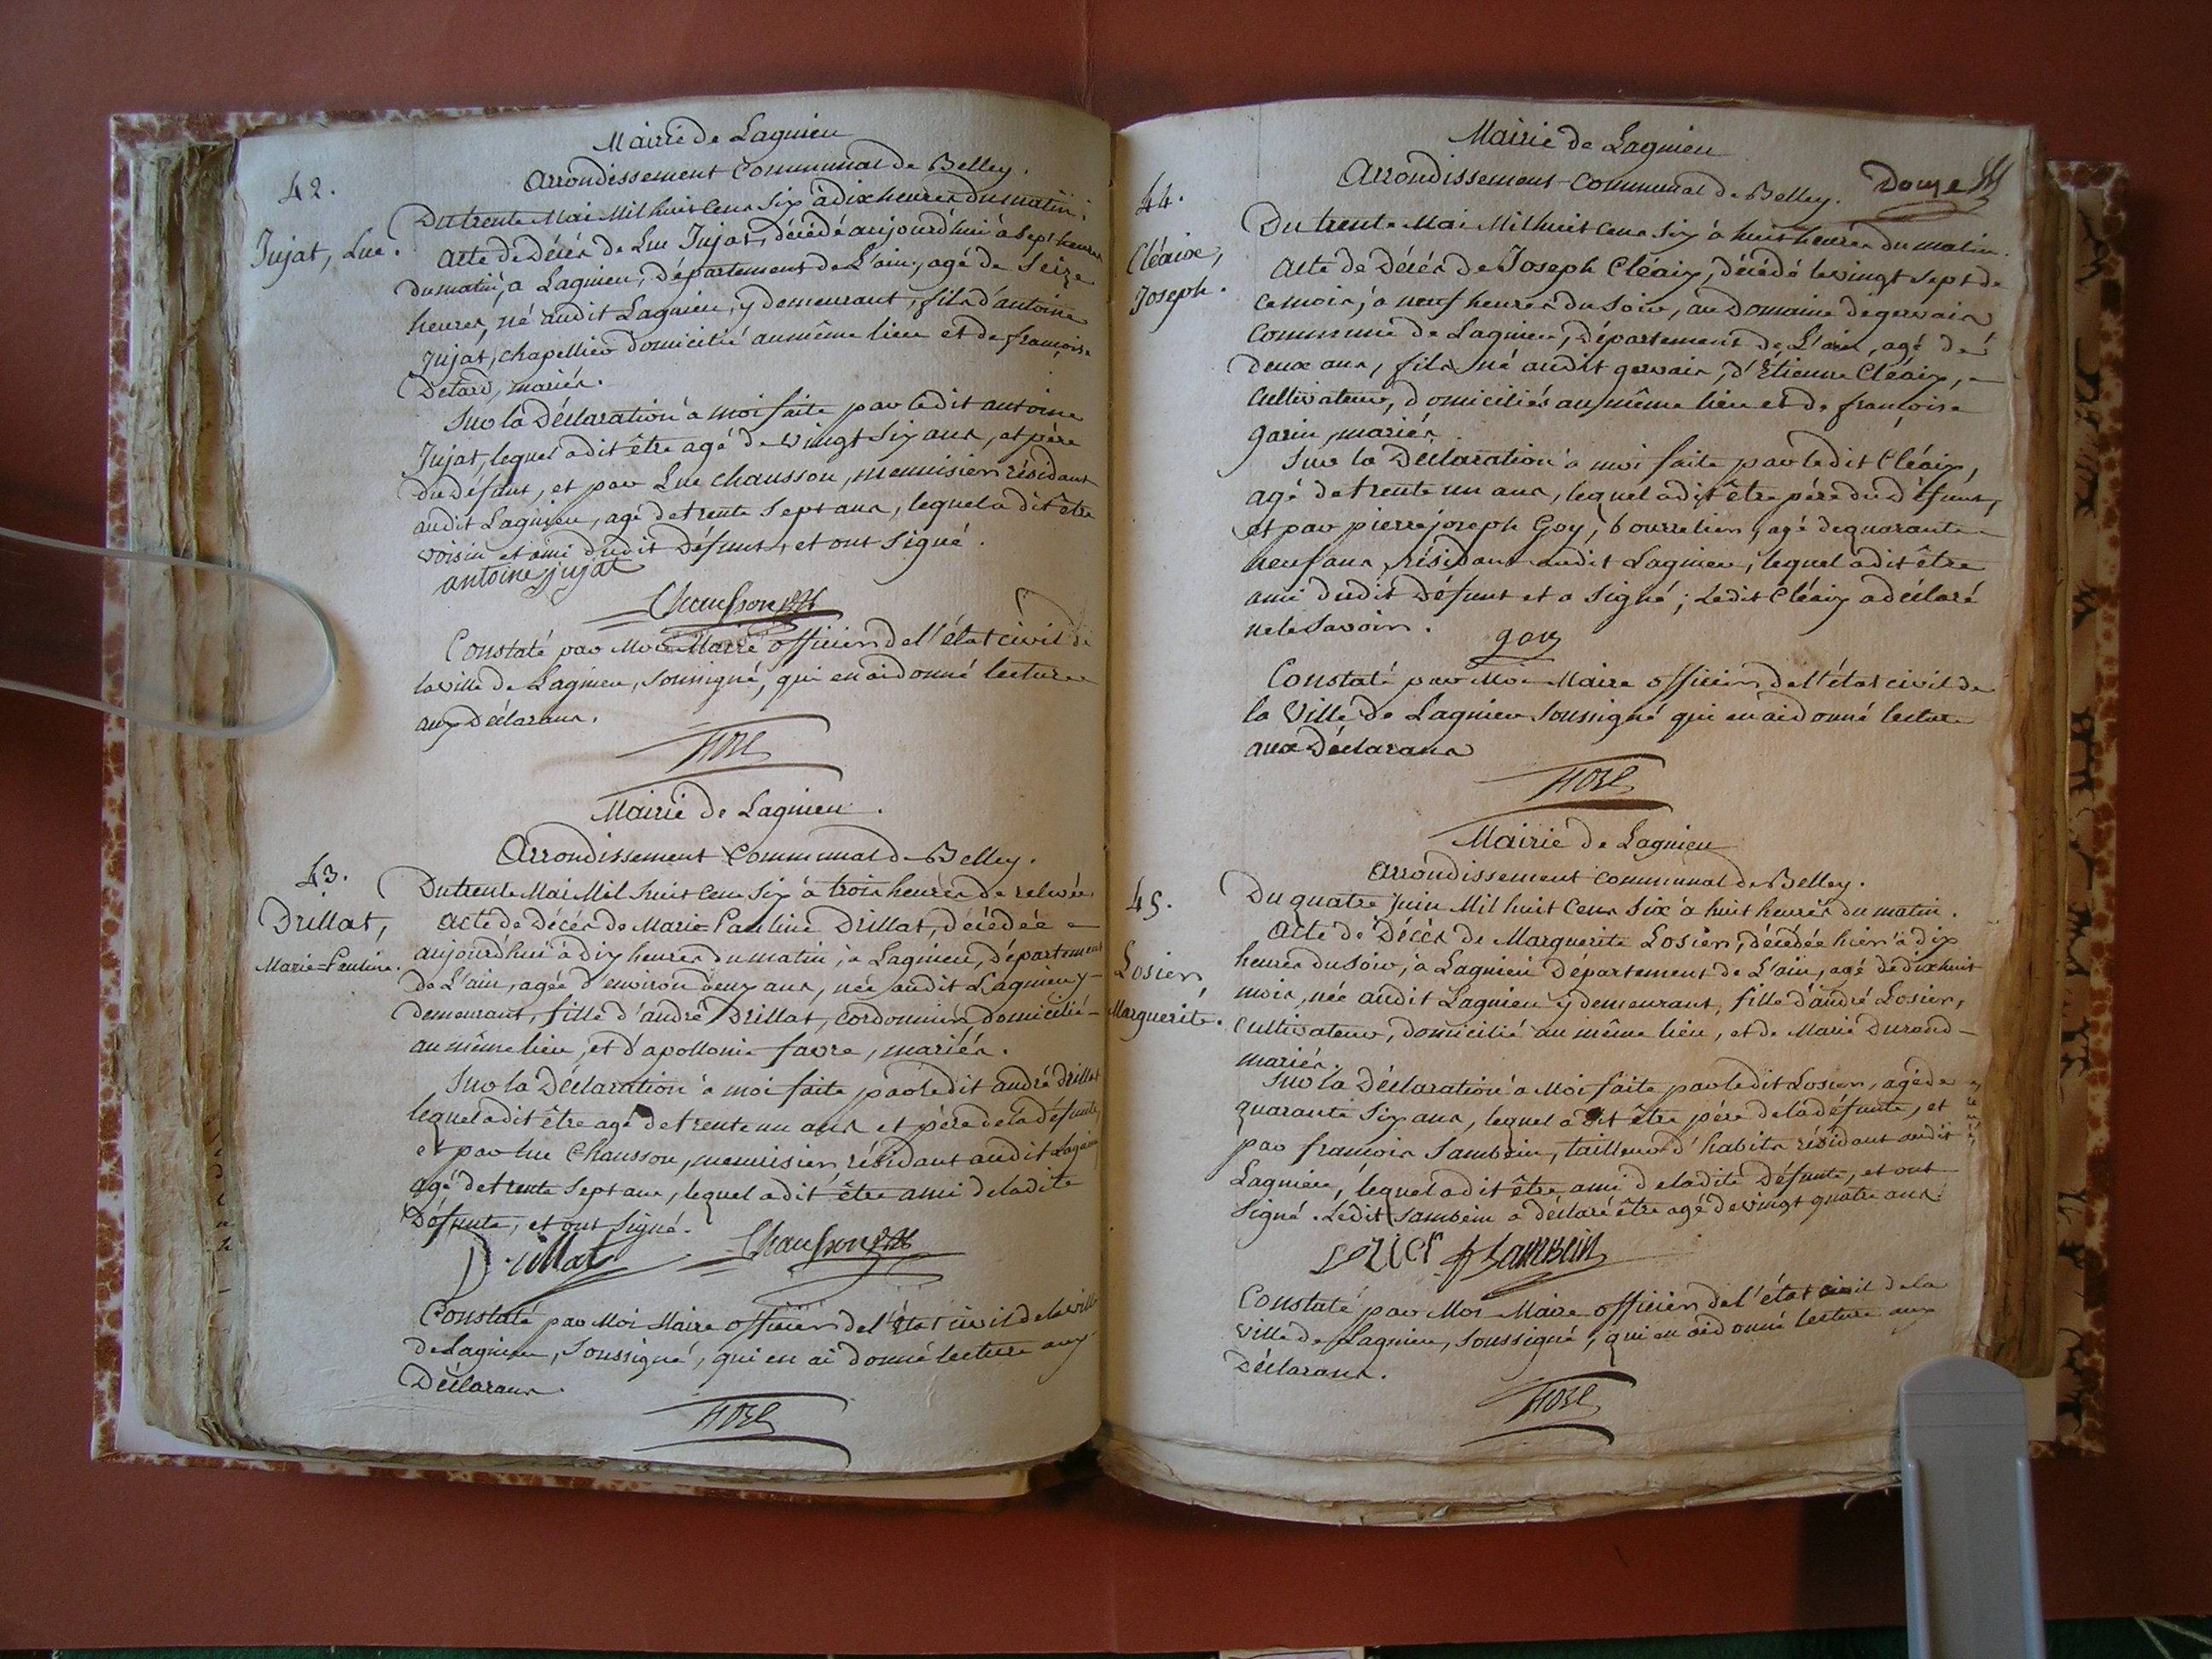 Mairie de Lagnieu
Arrondissement Communal de Belley.
42.
Jujat, Luc.
Du trente Mai Mil huit Cens Six à dix heures du matin.
Acte de Décès de Luc Jujat, décédé aujourd'hui à Sept heures
du matin, à Lagnieu, Département de L'ain, agé de Seize
heures, né audit Lagnieu, y demeurant, fils d'antoine
Jujat, chapellier domicilié au même lieu et de françoise
Detard, mariés.
Sur la Déclaration à moi faite par ledit antoine
Jujat, lequel a dit être agé de vingt Six ans, et père
du défunt, et par Luc Chausson, menuisier résidant
audit Lagnieu, agé de trente Sept ans, lequel a dit être
voisin et ami dudit Défunt, et ont Signé.
antoine jujat
Chausson
Constaté par Moi Maire officier de l'état civil de
la ville de Lagnieu, Soussigné, qui en ai donné lecture
aux Déclarans.
Mairie de Lagnieu.
Arrondissement Communal de Belley.
43.
Drillat,
Marie=Pauline.
Du trente Mai Mil huit Cens Six à trois heures de relevée.
Acte de Décès de Marie=Pauline Drillat, décédée
aujourd'hui à dix heures du matin, à Lagnieu, département
de L'ain, agée d'environ deux ans, née audit Lagnieu y
demeurant, fille d'andré Drillat, cordonnier domicilié
au même lieu, et d'apollonie favre, mariés.
Sur la Déclaration à moi faite par ledit andré Drillat
lequel a dit être agé de trente un ans et père de la défunte,
et par luc Chausson, menuisier, résidant audit Lagnieu
agé de trente Sept ans, lequel a dit être ami de ladite
Défunte, et ont Signé.
Drillat Chausson
Constaté par Moi Maire officier de l'état civil de la ville
de Lagnieu, Soussigné, qui en ai donné lecture aux
Déclarans.
Mairie de Lagnieu
Arrondissement Communal de Belley. Douze
44.
Cléaix,
Joseph.
Du trente Mai Mil huit Cens Six à huit heures du matin.
Acte de Décès de Joseph Cléaix, décédé le vingt Sept de
ce mois, à neuf heures du Soir, au Domaine de gervais
Commune de Lagnieu, Département de L'ain, agé de
deux ans, fils né audit gervais, d'Étienne Cléaix,
Cultivateur, domiciliés au même lieu et de françoise
garin, mariés.
Sur la Déclaration à moi faite par ledit Cléaix,
agé de trente un ans, lequel a dit être père du défunt,
et par pierre joseph Goy, bourrelier, agé de quarante
neuf ans, résidant audit Lagnieu, lequel a dit être
ami dudit Défunt et a Signé; Ledit Cléaix a déclaré
ne le Savoir.
goy
Constaté par Moi Maire officier de l'état civil de
la Ville de Lagnieu Soussigné qui en ai donné lecture
aux Déclarans
Mairie de Lagnieu
Arrondissement Communal de Belley.
45.
Losier,
Marguerite.
Du quatre Juin Mil huit Cens Six à huit heures du matin.
Acte de Décès de Marguerite Losier, décédée hier à dix
heures du Soir, à Lagnieu Département de L'ain, agé de dix huit
mois, née audit Lagnieu y demeurant, fille d'andré Losier,
Cultivateur, domicilié au même lieu, et de Marie Durand
mariés.
Sur la Déclaration à Moi faite par ledit Losier, agé de
quarante Six ans, lequel a dit être père de la défunte, et
par françois Sambein, tailleur d'habits résidant audit
Lagnieu, lequel a dit être ami de ladite Défunte, et ont
Signé. Ledit Sambein a déclaré être agé de vingt quatre ans.
Lozier Sambein
Constaté par Moi Maire officier de l'état civil de la
ville de Lagnieu, Soussigné, qui en ai donné lecture aux
Déclarans.